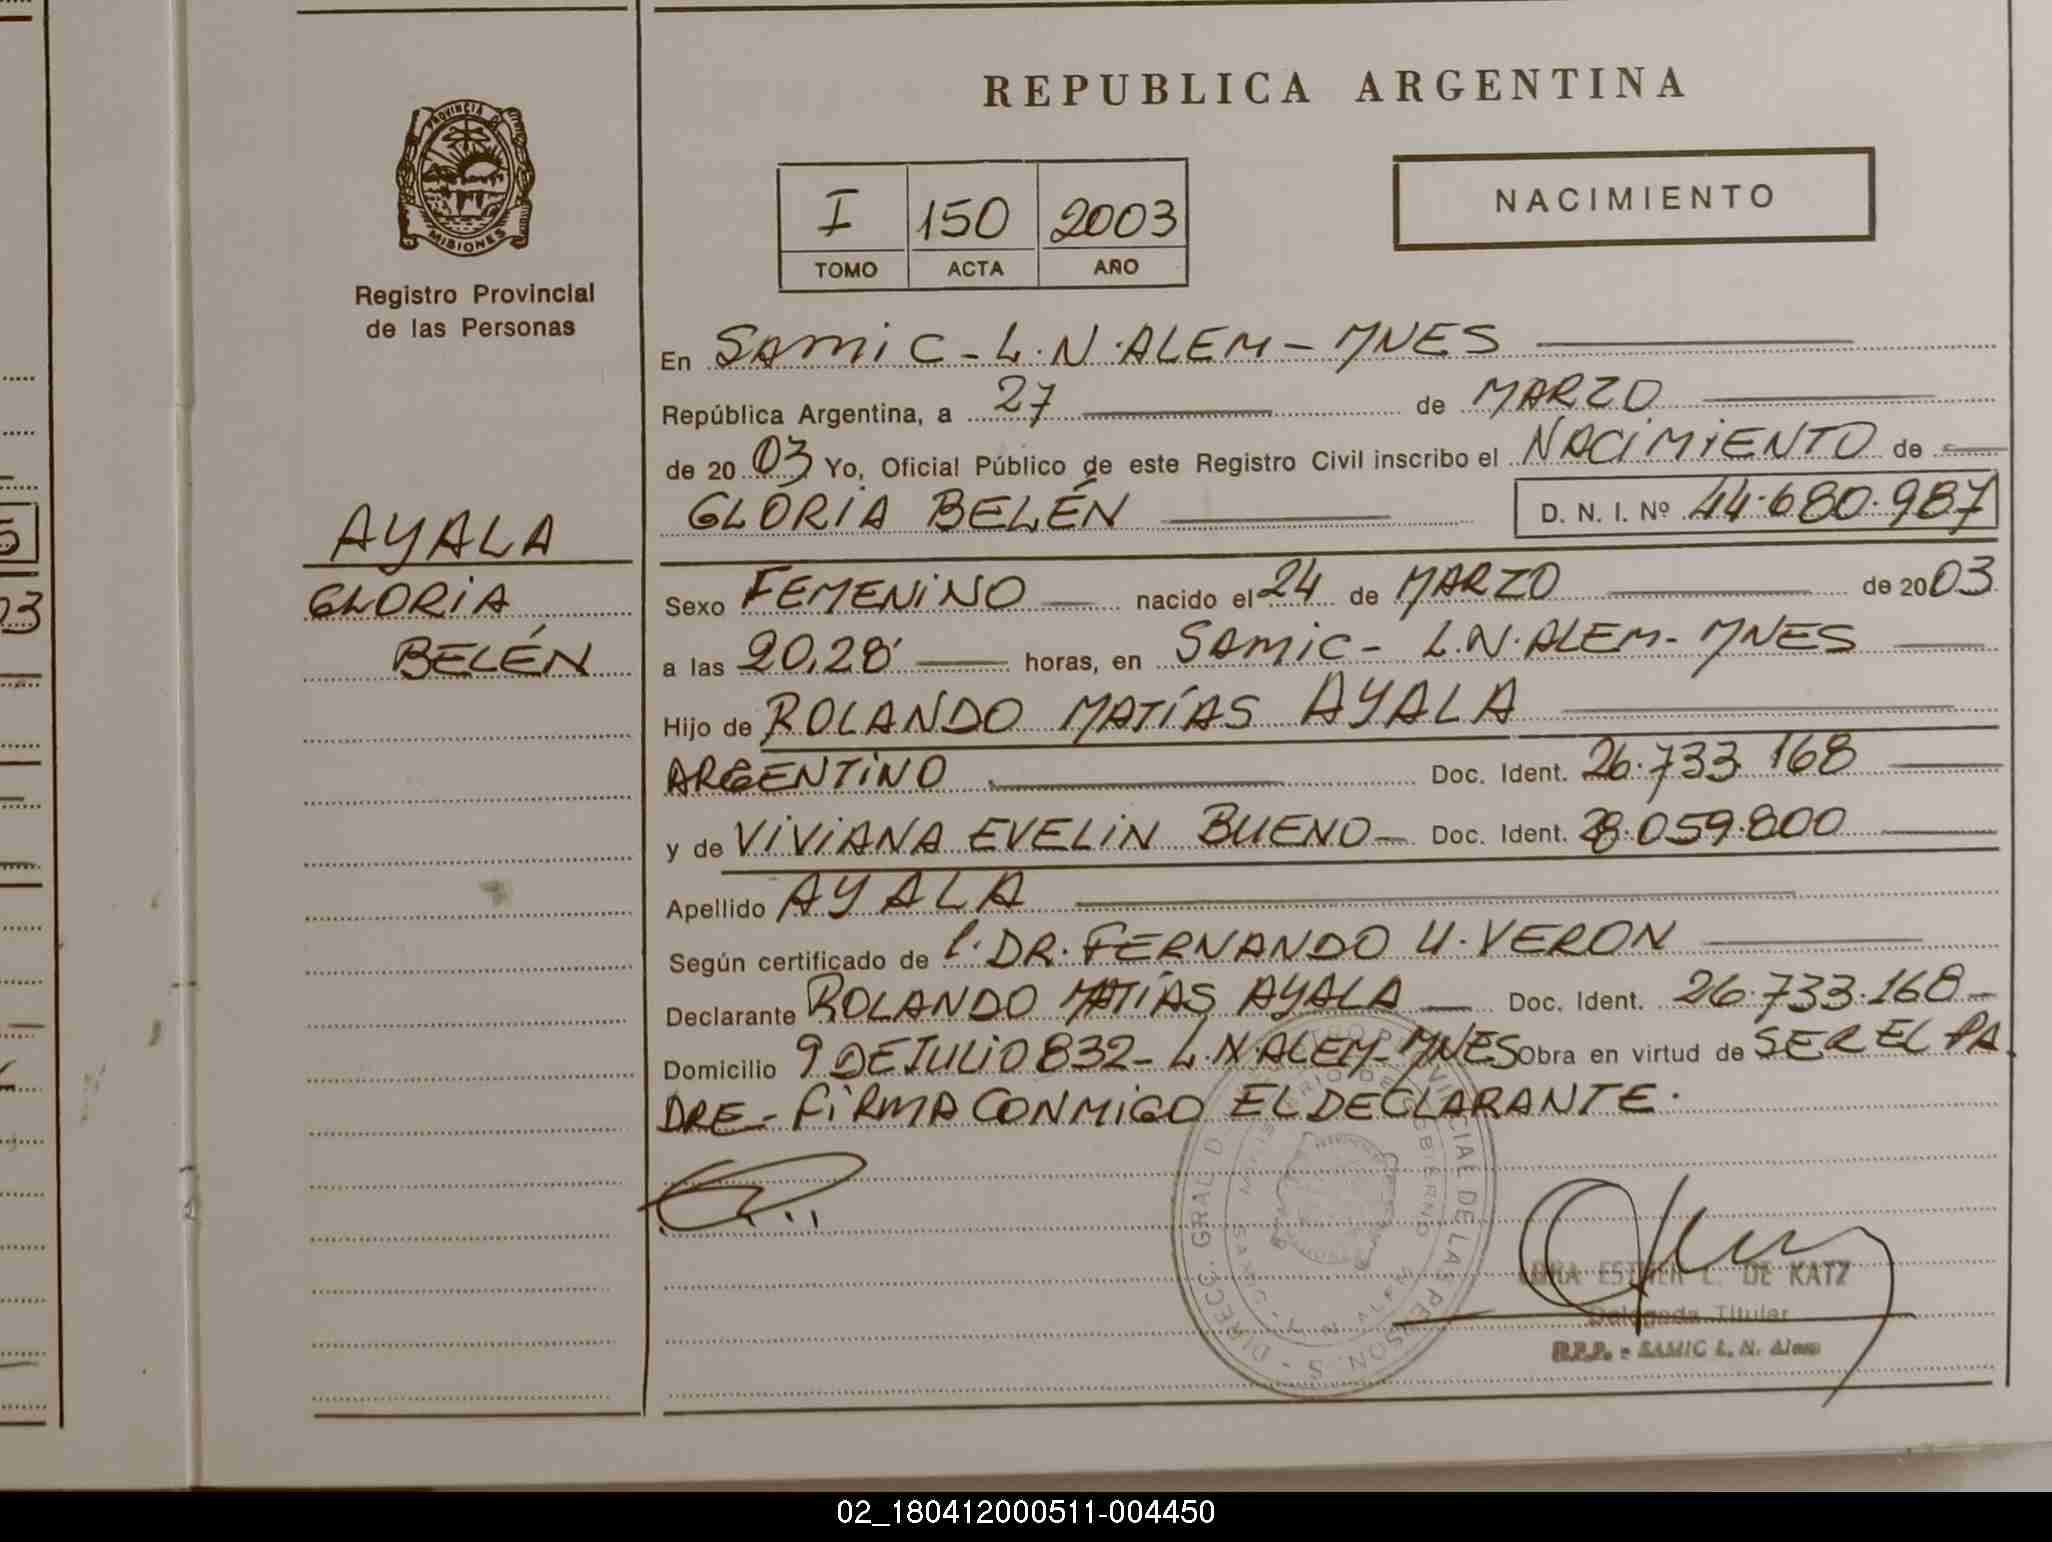 REPUBLICA ARGENTINA
PROVINCIA DE
MISIONES
Registro Provincial
de las Personas
I 150 2003
TOMO ACTA AÑO
NACIMIENTO
AYALA
GLORIA
BELÉN
En SAMIC - L.N. ALEM - MNES
República Argentina, a 27 de MARZO
de 2003 Yo, Oficial Público de este Registro Civil inscribo el NACIMIENTO de
GLORIA BELÉN D. N. I. Nº 44.680.987
Sexo FEMENINO nacido el 24 de MARZO de 2003
a las 20,28' horas, en SAMIC - L.N. ALEM - MNES
Hijo de ROLANDO MATÍAS AYALA
ARGENTINO Doc. Ident. 26.733.168
y de VIVIANA EVELIN BUENO Doc. Ident. 28.059.800
Apellido AYALA
Según certificado de l. DR. FERNANDO U. VERON
Declarante ROLANDO MATÍAS AYALA Doc. Ident. 26.733.168
Domicilio 9 DE JULIO 832 - L.N. ALEM - MNES Obra en virtud de SER EL PA
DRE - FIRMA CONMIGO EL DECLARANTE.
ESTHER L. DE KATZ
Delegada Titular
R.P.P. - SAMIC L. N. Alem
02_180412000511-004450